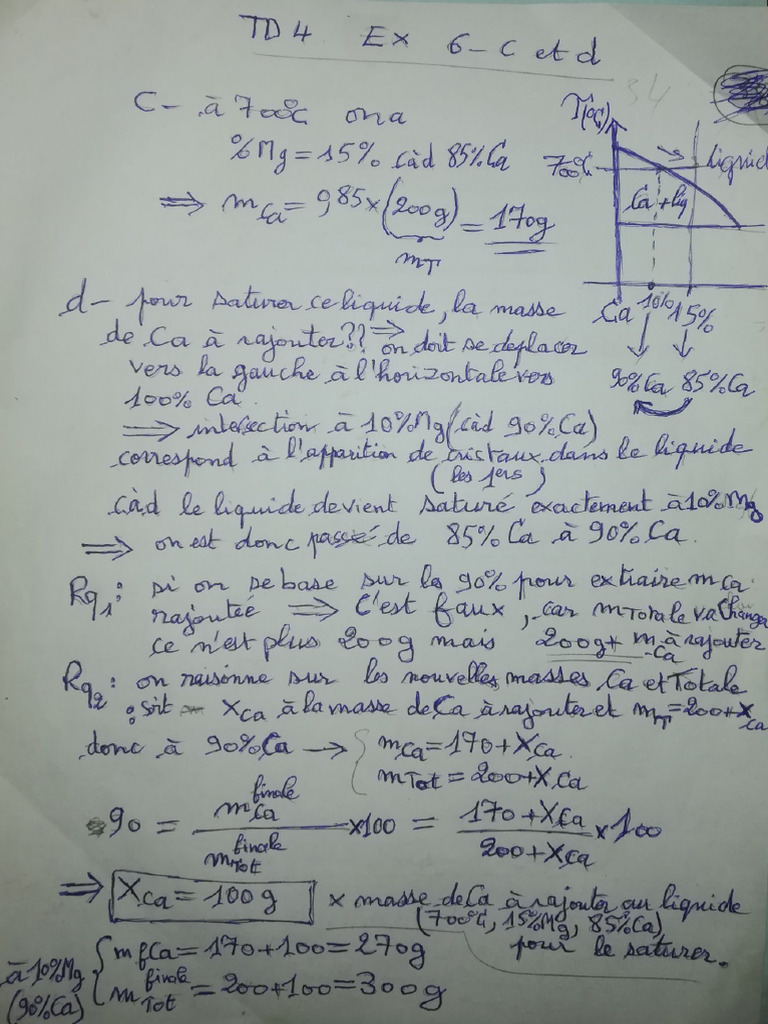 TD 4 Ex 6 - C et d
C - à 700°C on a
%Mg = 15% càd 85% Ca
⟹ m_Ca = 0,85 × (200g) = 170g
m_T
T(°C)
700°C
liquid
Ca + liq
Ca 10% 15%
90% Ca 85% Ca
d - pour saturer ce liquide, la masse
de Ca à rajouter?? ⟹ on doit se deplacer
vers la gauche à l'horizontale vers
100% Ca.
⟹ intersection à 10% Mg (càd 90% Ca)
correspond à l'apparition de cristaux dans le liquide
(les 1ers)
càd le liquide devient saturé exactement à 10% Mg
⟹ on est donc passé de 85% Ca à 90% Ca.
Rq1 : si on se base sur les 90% pour extraire m Ca
rajoutée ⟹ C'est faux, car m Totale va changer
ce n'est plus 200g mais 200g + m Ca à rajouter
Rq2 : on raisonne sur les nouvelles masses Ca et Totale
: soit X_Ca à la masse de Ca à rajouter et m_T = 200 + X_Ca
donc à 90% Ca → { m_Ca = 170 + X_Ca
m_Tot = 200 + X_Ca
90 = m_Ca^finale / m_Tot^finale × 100 = (170 + X_Ca) / (200 + X_Ca) × 100
⟹ X_Ca = 100 g × masse de Ca à rajouter au liquide
(700°C, 15% Mg, 85% Ca)
pour le saturer.
à 10% Mg (90% Ca) { m f Ca = 170 + 100 = 270g
m_Tot^finale = 200 + 100 = 300g